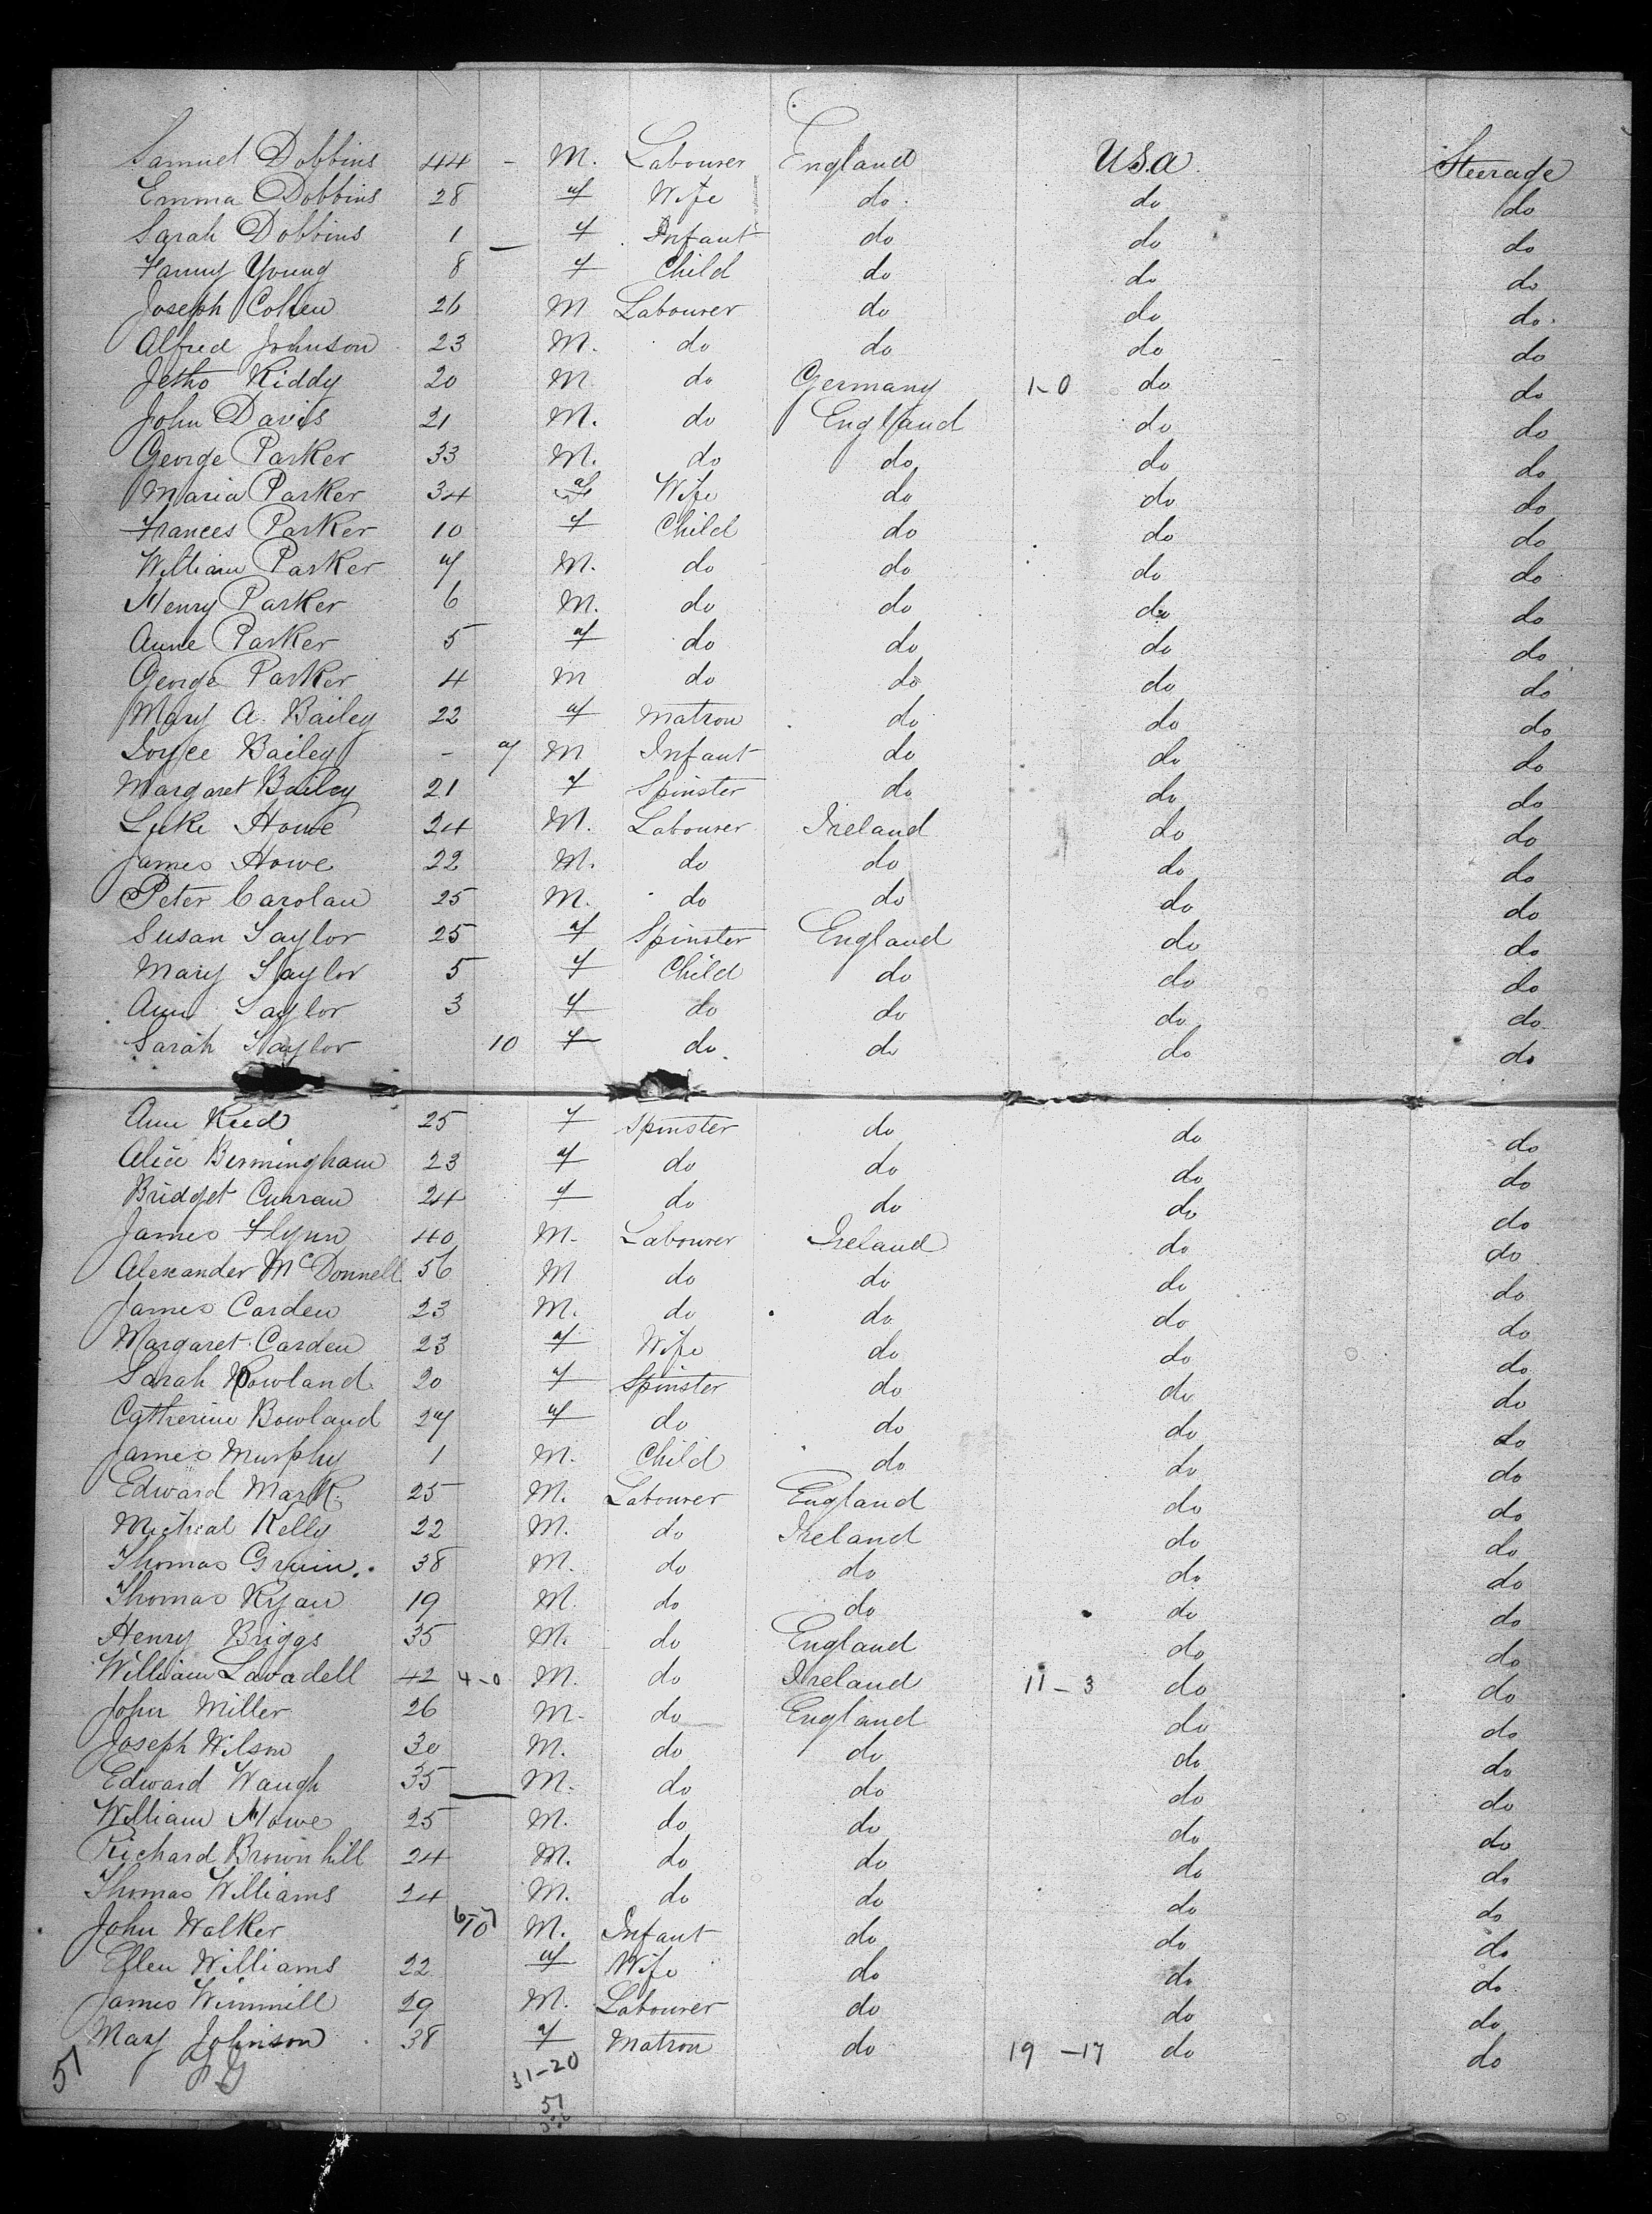 Samuel Dobbins 44 - M. Labourer England U.S.a. Steerade
Emma Dobbins 28 f Wife do. do do
Sarah Dobbins 1 f Infant do do do
Fanny Young 8 f Child do do do
Joseph Cohen 26 M Labourer do do do.
Alfred Johnson 23 M. do do do do
Jetho Kiddy 20 M. do Germany 1-0 do do
John Davis 21 M. do England do do
George Parker 33 M. do do do do
Maria Parker 34 f Wife do do do
Frances Parker 10 f Child do do do
William Parker 7 M. do do do do
Henry Parker 6 M. do do do do
Anne Parker 5 f do do do do
George Parker 4 m do do do do
Mary A. Bailey 22 f Matron do do do
Joyce Bailey - 7 M Infant do do do
Margaret Bailey 21 f Spinster do do do
Luke Howe 24 M. Labourer Ireland do do
James Howe 22 M. do do do do
Peter Carolan 25 M. do do do do
Susan Taylor 25 f Spinster England do do
Mary Taylor 5 f Child do do do
Ann Taylor 3 f do do do do
Sarah Taylor 10 f do. do do do
Ann Reed 25 f Spinster do do do
Alice Bermingham 23 f do do do do
Bridget Curran 24 f do do do do
James Flynn 40 M. Labourer Ireland do do
Alexander McDonnell 56 M do do do do
James Carden 23 M. do do do do
Margaret Carden 23 f Wife do do do
Sarah Rowland 20 f Spinster do do do
Catherine Bowland 27 f do do do do
James Murphy 1 M. Child do do do
Edward Mark 25 M. Labourer England do do
Micheal Kelly 22 M. do Ireland do do
Thomas 38 M. do do do do
Thomas Ryan 19 M. do do do do
Henry Briggs 35 M. do England do do
William Lavadell 42 4-0 M. do Ireland 11-3 do do
John Miller 26 M. do England do do
Joseph Wilson 30 M. do do do do
Edward Waugh 35 M. do do do do
William Howe 25 M. do do do do
Richard Brownhill 24 M. do do do do
Thomas Williams 24 M. do do do do
John Walker 10 M. Infant do do do
Ellen Williams 22 f Wife do do do
James Wimmill 29 M. Labourer do do do
Mary Johnson 38 f Matron do 19-17 do do
51 31-20
51